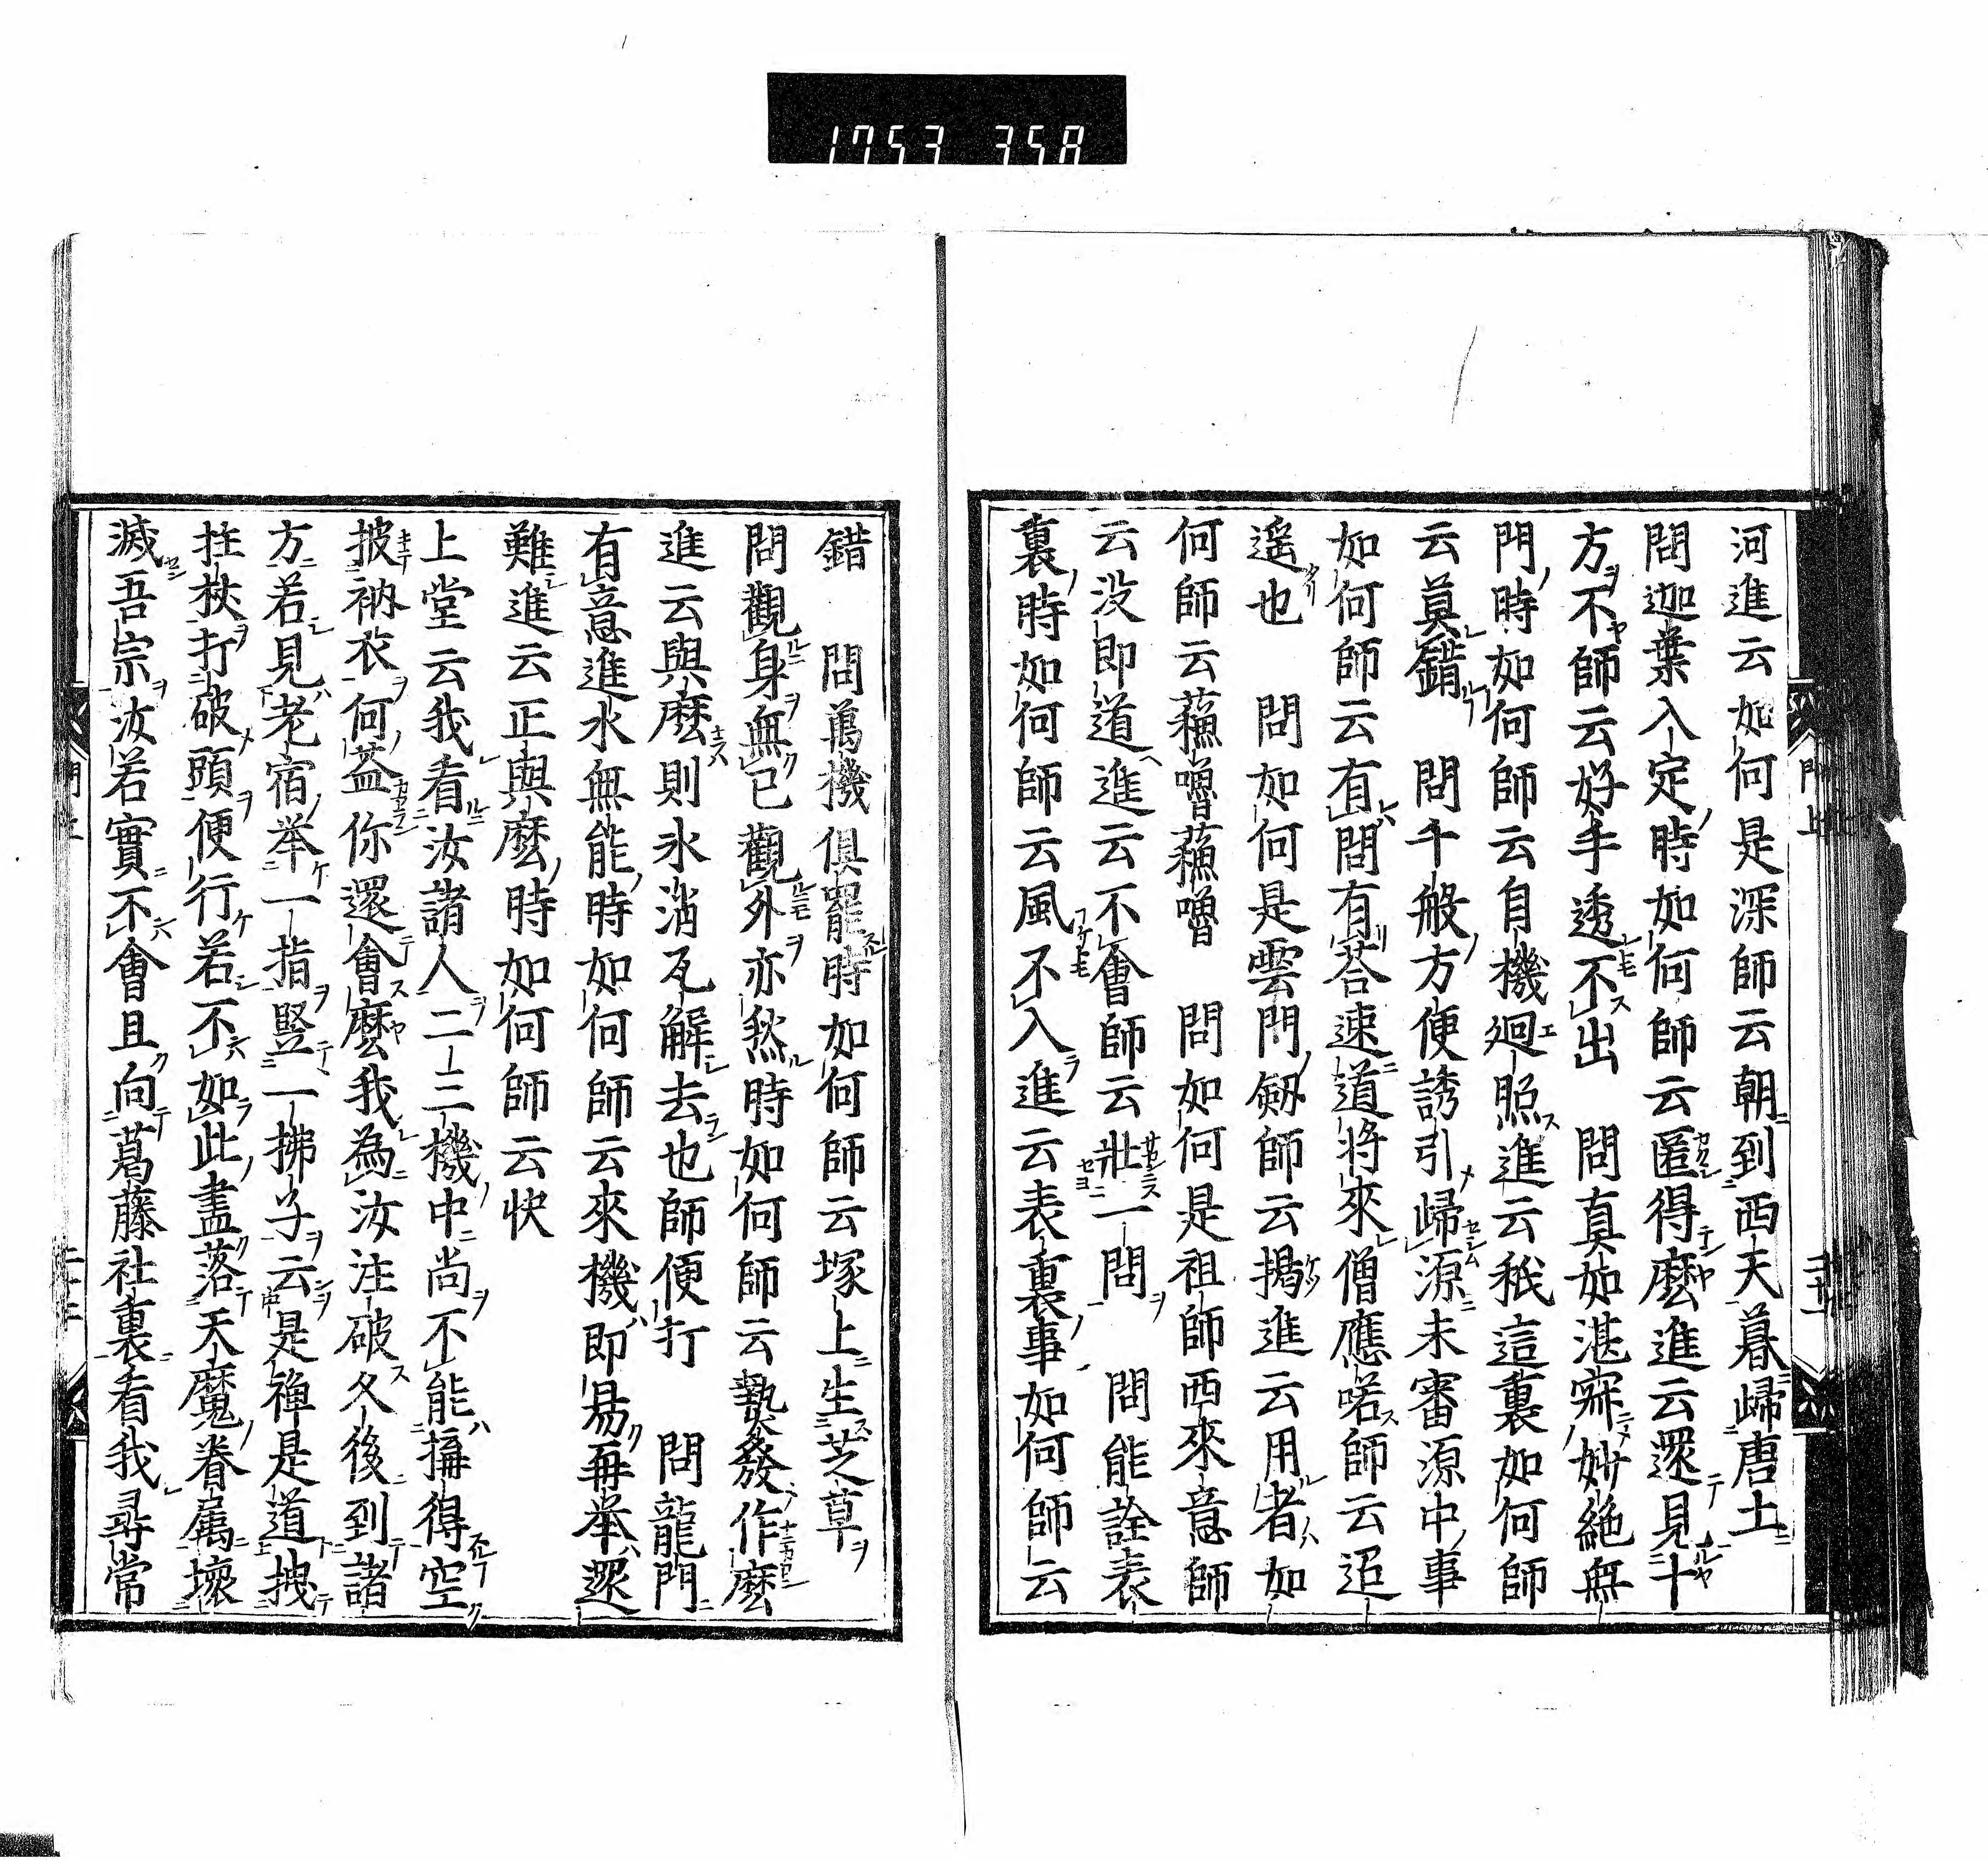 1753 358
河進云如何是深師云朝到西天暮歸唐土
問迦葉入定時如何師云匿得麼進云還見十
方不師云好手透不出　問真如湛寂妙絶無
門時如何師云自機廻照進云秖這裏如何師
云莫錯　問千般方便誘引歸源未審源中事
如何師云有問有荅速道将來僧應喏師云迢
遥也　問如何是雲門劔師云揭進云用者如
何師云蘓嚕蘓嚕　問如何是祖師西來意師
云没即道進云不會師云壯一問　問能詮表
裏時如何師云風不入進云表裏事如何師云
錯　問萬機俱罷時如何師云塚上生芝草
問觀身無已觀外亦然時如何師云熱發作麼
進云與麼則氷消瓦解去也師便打　問龍門
有意進水無能時如何師云來機即易再举還
難進云正與麼時如何師云快
上堂云我看汝諸人二三機中尚不能搆得空
披衲衣何益你還會麼我為汝注破久後到諸
方若見老宿举一指竪一拂子云是禅是道拽
拄杖打破頭便行若不如此盡落天魔眷屬壞
滅吾宗汝若實不會且向葛藤社裏看我尋常